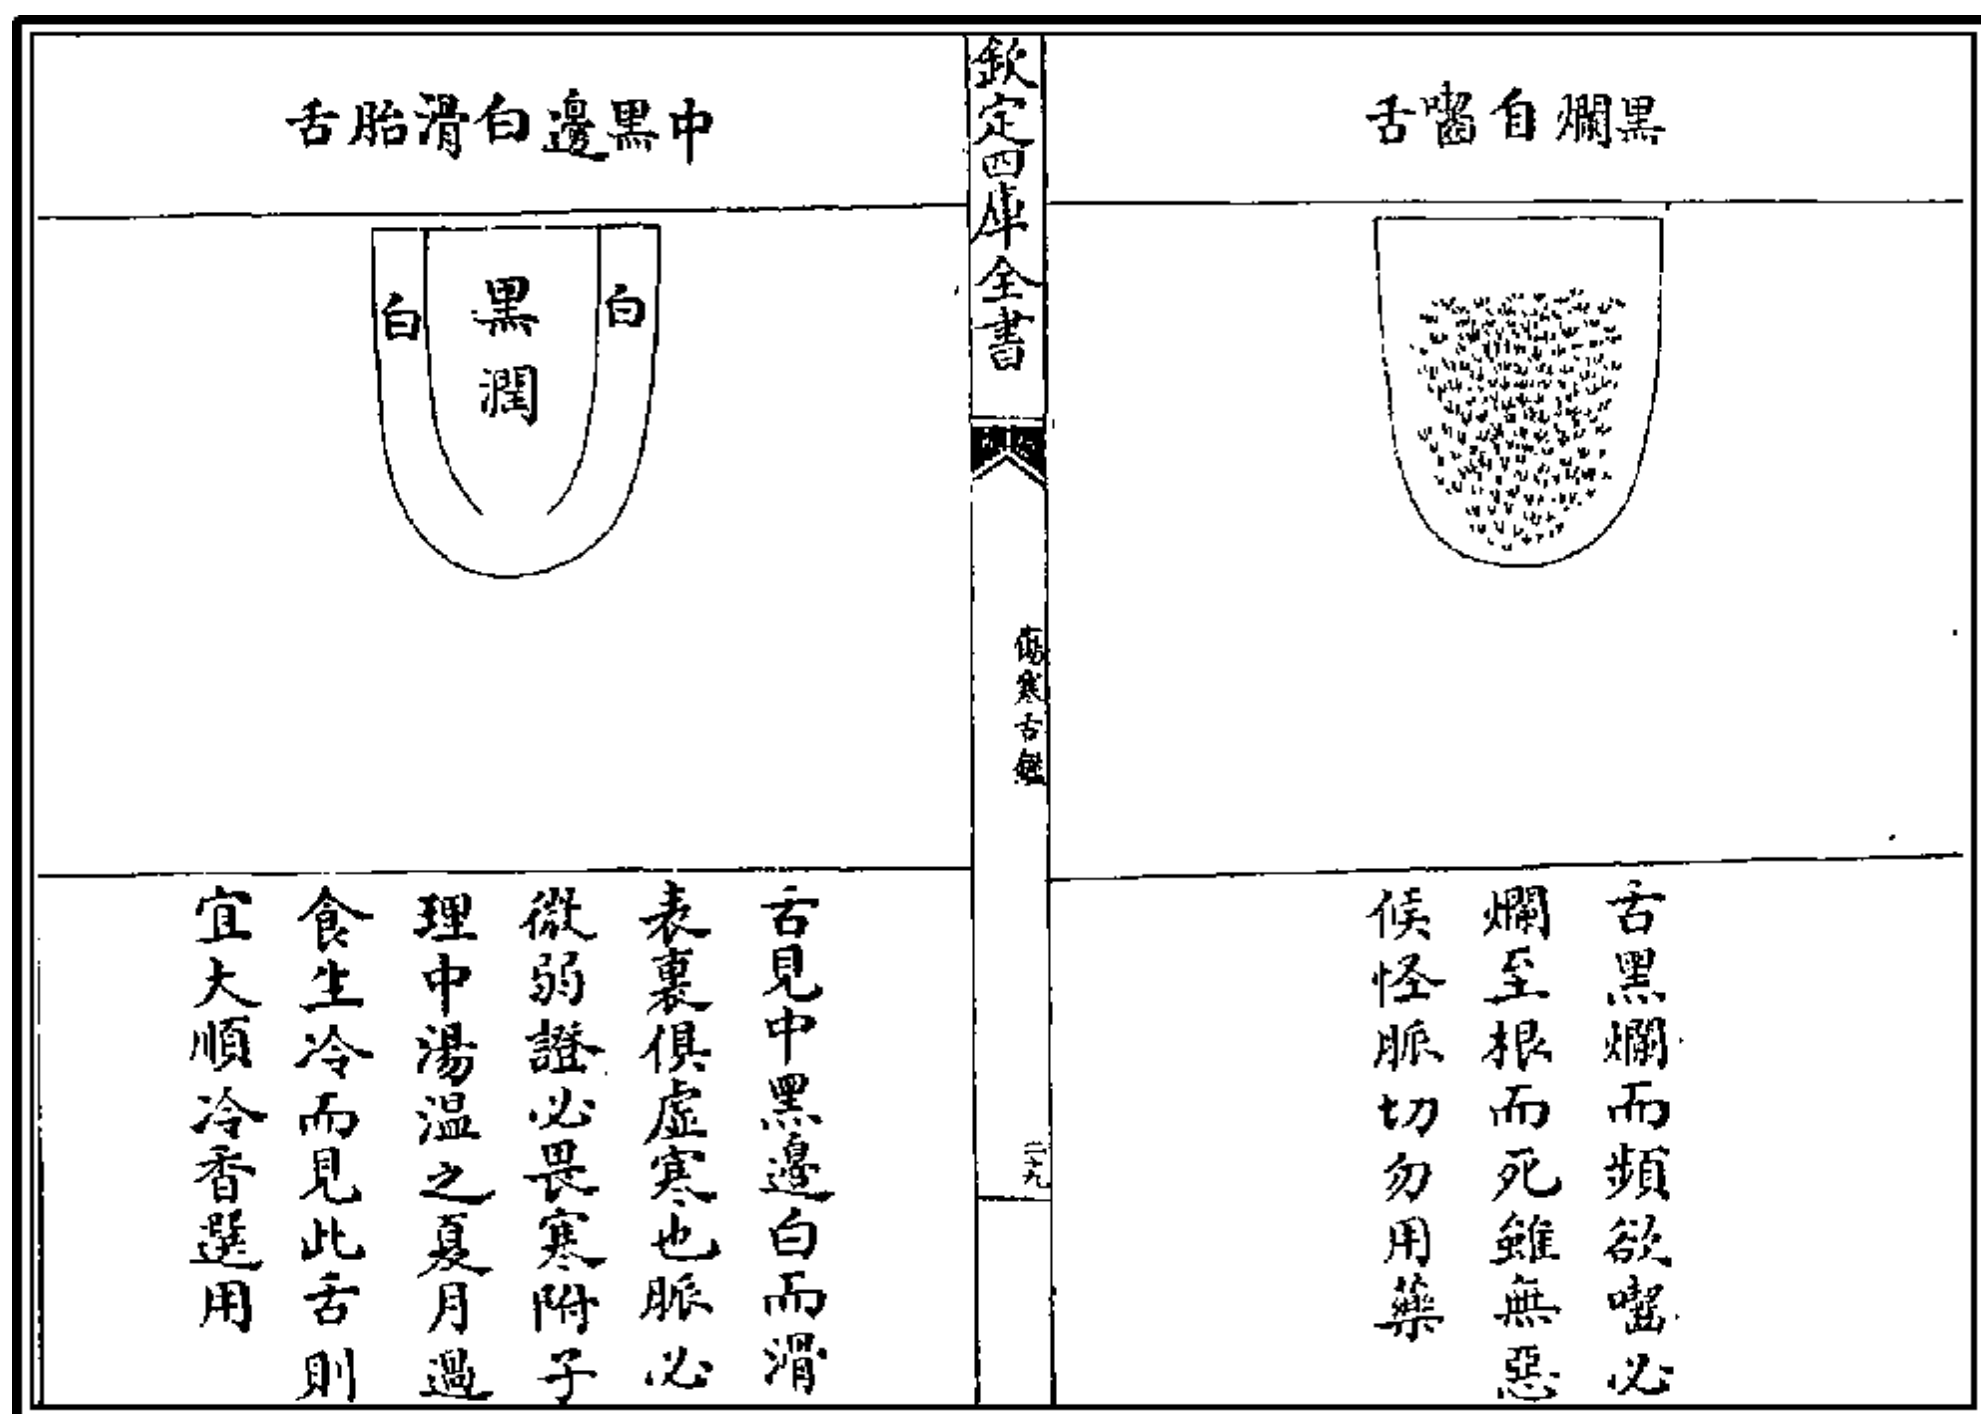 黒爛自嚙舌
舌黒爛而頻欲嚙必
爛至根而死雖無惡
候怪脈切勿用藥
欽定四庫全書
傷寒舌鑑
二十九
中黒邊白滑胎舌
白
黒潤
白
舌見中黒邊白而滑
表裏俱虛寒也脈必
微弱證必畏寒附子
理中湯温之夏月過
食生冷而見此舌則
宜大順冷香選用